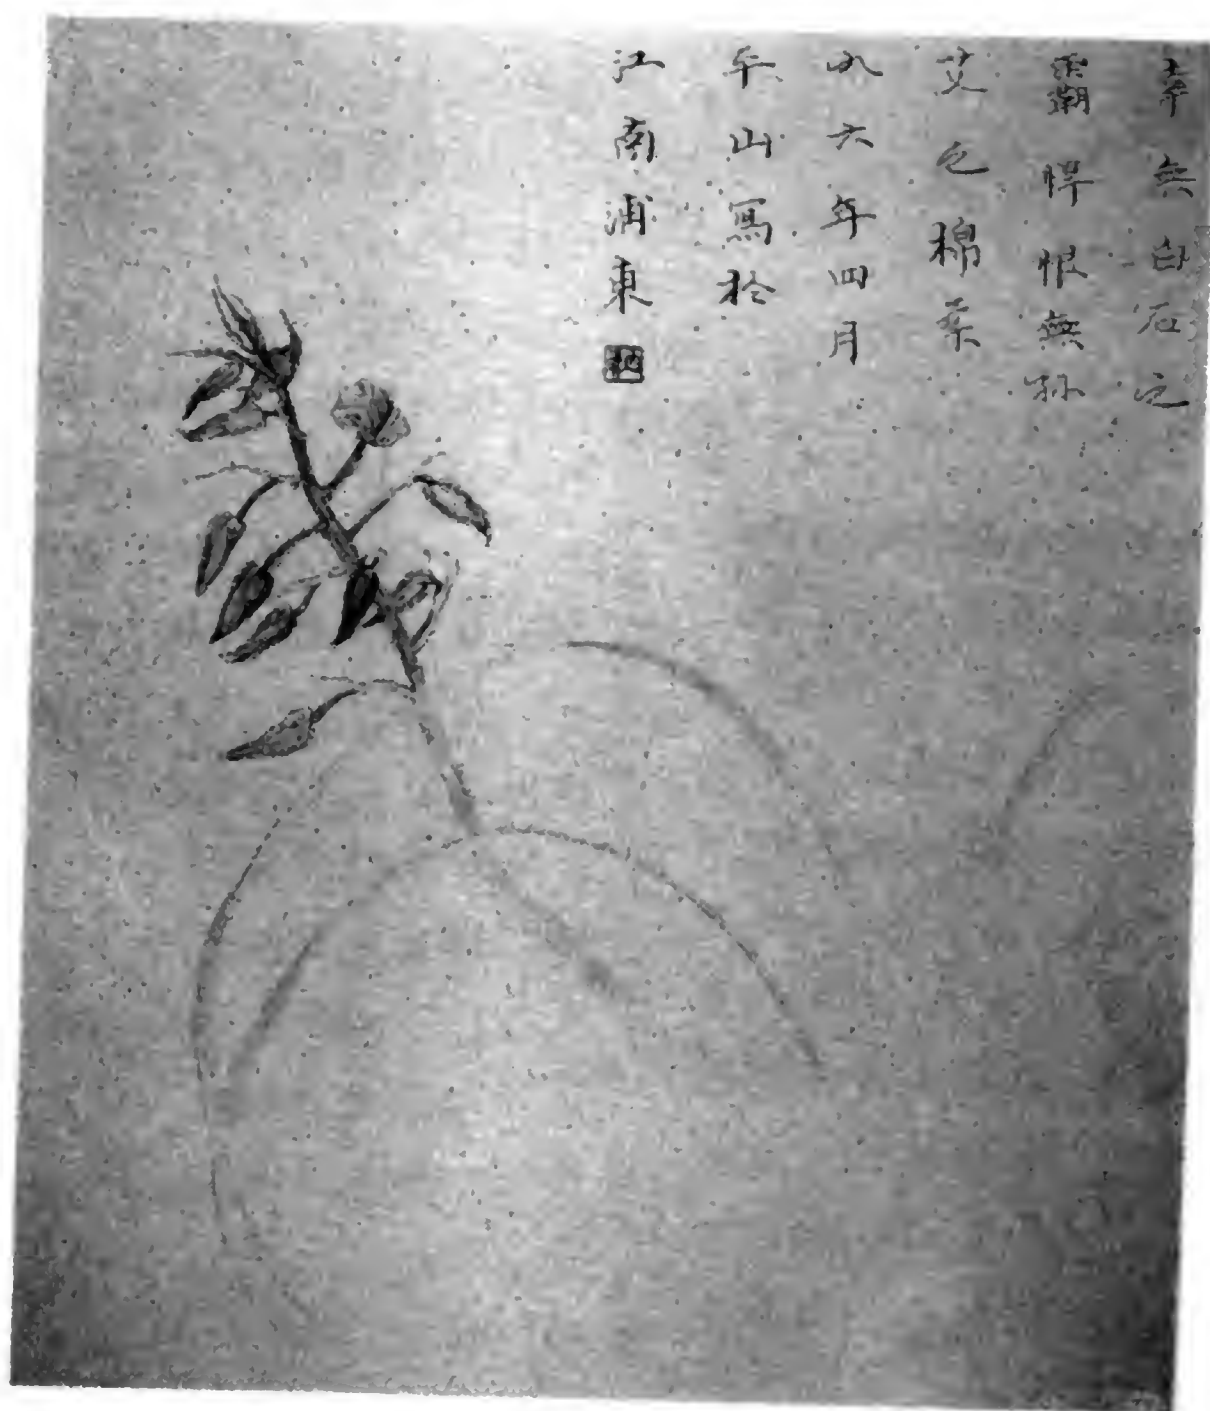 幸無白石之
霸悍恨無孫
艾之棉柔
八六年四月
午山寫於
江南浦東